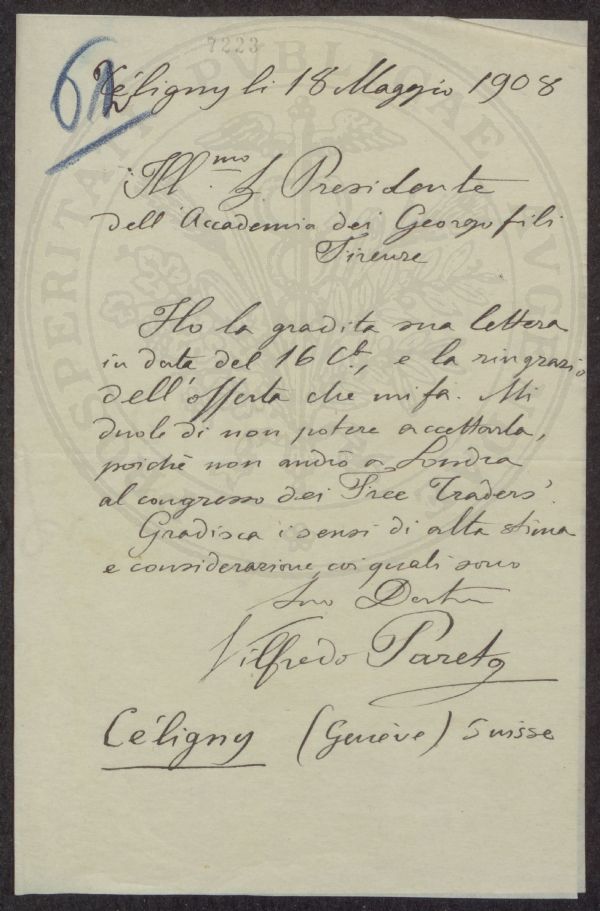 7223
61
Céligny li 18 Maggio 1908
Ill.mo S. Presidente
dell'Accademia dei Georgofili
Firenze
Ho la gradita sua lettera
in data del 16 Ct., e la ringrazio
dell'offerta che mi fa. Mi
duole di non potere accettarla,
poichè non andrò a Londra
al congresso dei Free Traders.
Gradisca i sensi di alta stima
e considerazione coi quali sono
Suo Devmo
Vilfredo Pareto
Céligny (Genève) Suisse
PROSPERITATI PUBLICAE AUGENDAE